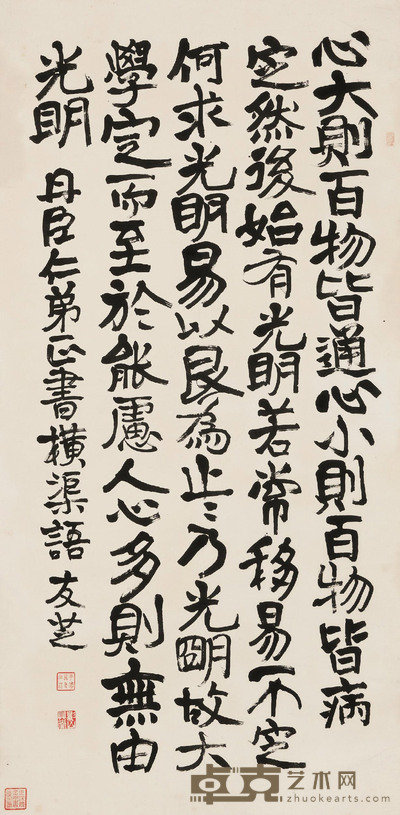 心大則百物皆通心小則百物皆病
定然後始有光明若常移易不定
何求光明易以艮為止〻乃光朙故大
學定而至於能慮人心多則無由
光明 丹臣仁弟正書橫渠語 友芝
卓克艺术网
zhuokearts.com